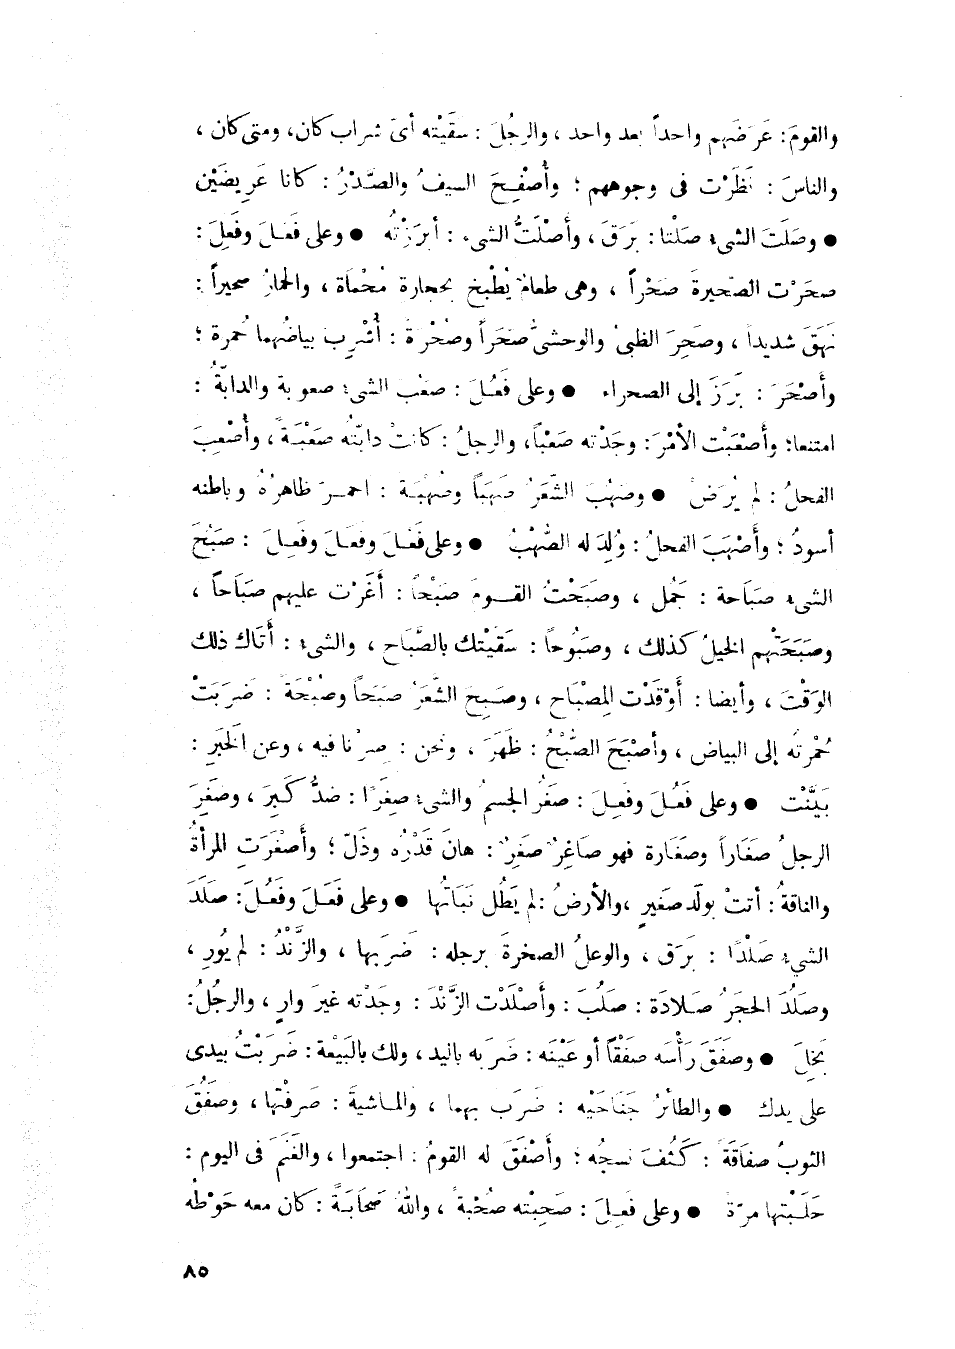 والقومَ: عَرَضَهم واحداً بعد واحد ، والرجُلَ : سَقَيْته أىَّ شراب كان، ومتى كان ،
والناسَ : نَظَرْت فى وجوههم ؛ وأُصْفِحَ السيفُ والصَّدْرُ : كانا عَرِيضَيْن
● وصَلَتَ الشىءُ صَلْتا : بَرَقَ ، وأَصْلَتُّ الشىء : أبرَزْتُه ● وعلى فَعَلَ وفَعِلَ :
صحَرْت الصَّحيرةَ صَحْراً ، وهى طعامٌ يُطْبخ بحجارة مُحْمَاة ، والحمارُ صحيراً :
نَهَقَ شديداً ، وصَحِرَ الظبىُ والوحشىُّ صَحَراً وصُحْرة : أُشْرِب بياضُهما حُمرة ؛
وأَصْحَرَ : بَرَزَ إلى الصحراء ● وعلى فَعُلَ : صعُب الشىءُ صعوبة والدابّةُ :
امتنعا؛ وأَصْعَبْت الأمْرَ : وجَدْته صَعْباً، والرجلُ : كانتْ دابّتُه صَعْبَةً ، وأُصْعِبَ
الفحلُ : لم يُرَضْ ● وصَهُبَ الشَّعَرُ صَهَباً وصُهْبَة : احمرّ ظاهرُهُ وباطنه
أسودُ ؛ وأَصْهَبَ الفحلُ : وُلِدَ له الصُّهْبُ ● وعلى فَعُلَ وفَعَلَ وفَعِلَ : صَبُحَ
الشىءُ صبَاحة : جَمُل ، وصبَحْتُ القومَ صَبْحاً : أَغَرْت عليهم صبَاحاً ،
وصبَحَتْهم الخيلُ كذلك ، وصبُوحاً : سَقَيْتك بالصَّبَاح ، والشىءُ : أَتَاك ذلك
الوَقْتَ ، وأيضا : أَوْقَدْت المِصْبَاح ، وصَبِحَ الشَّعَرُ صبَحاً وصُبْحَةً : ضَرَبَتْ
حُمْرتُه إلى البياض ، وأصْبَحَ الصُّبْحُ : ظَهَرَ ، ونحن : صِرْنا فيه ، وعن الخَبَرِ :
بَيَّنْت ● وعلى فَعُلَ وفَعِلَ : صغُرَ الجسمُ والشىءُ صِغَرًا : ضدُّ كَبِرَ ، وصَغِرَ
الرجلُ صَغَاراً وصَغَارة فهو صاغِرٌ صَغِرٌ : هانَ قَدْرُه وذَلّ ؛ وأَصْغَرَتِ المرأةُ
والناقةُ : أتتْ بولَد صَغيرٍ ، والأرضُ : لم يَطُل نَبَاتُها ● وعلى فَعَلَ وفَعُلَ : صَلَدَ
الشىءُ صَلْدًا : بَرَق ، والوعلُ الصخرةَ برجله : ضَرَبها ، والزَّنْدُ : لم يُورِ ،
وصَلُدَ الحجَرُ صَلادَة : صَلُبَ : وأَصْلَدْت الزَّنْدَ : وجَدْته غيرَ وارٍ ، والرجُلُ :
بَخِلَ ● وصفَقَ رَأْسَه صَفْقًا أو عَيْنَه : ضَرَبه باليد ، ولك بالبَيْعة : ضَرَبْتُ بيدى
على يدك ● والطائرُ جَنَاحَيْه : ضَرَب بهما ، والماشيةَ : صَرفْتها ، وصَفُقَ
الثوبُ صفَاقَةً : كَثُفَ نسجُه ؛ وأَصْفَقَ له القومُ : اجتمعوا ، والغَنَمَ فى اليوم :
حَلَبْتها مرّةً ● وعلى فَعِلَ : صَحِبْته صُحْبةً ، واللهُ صَحَابَةً : كان معه حَوْطُه
٨٥